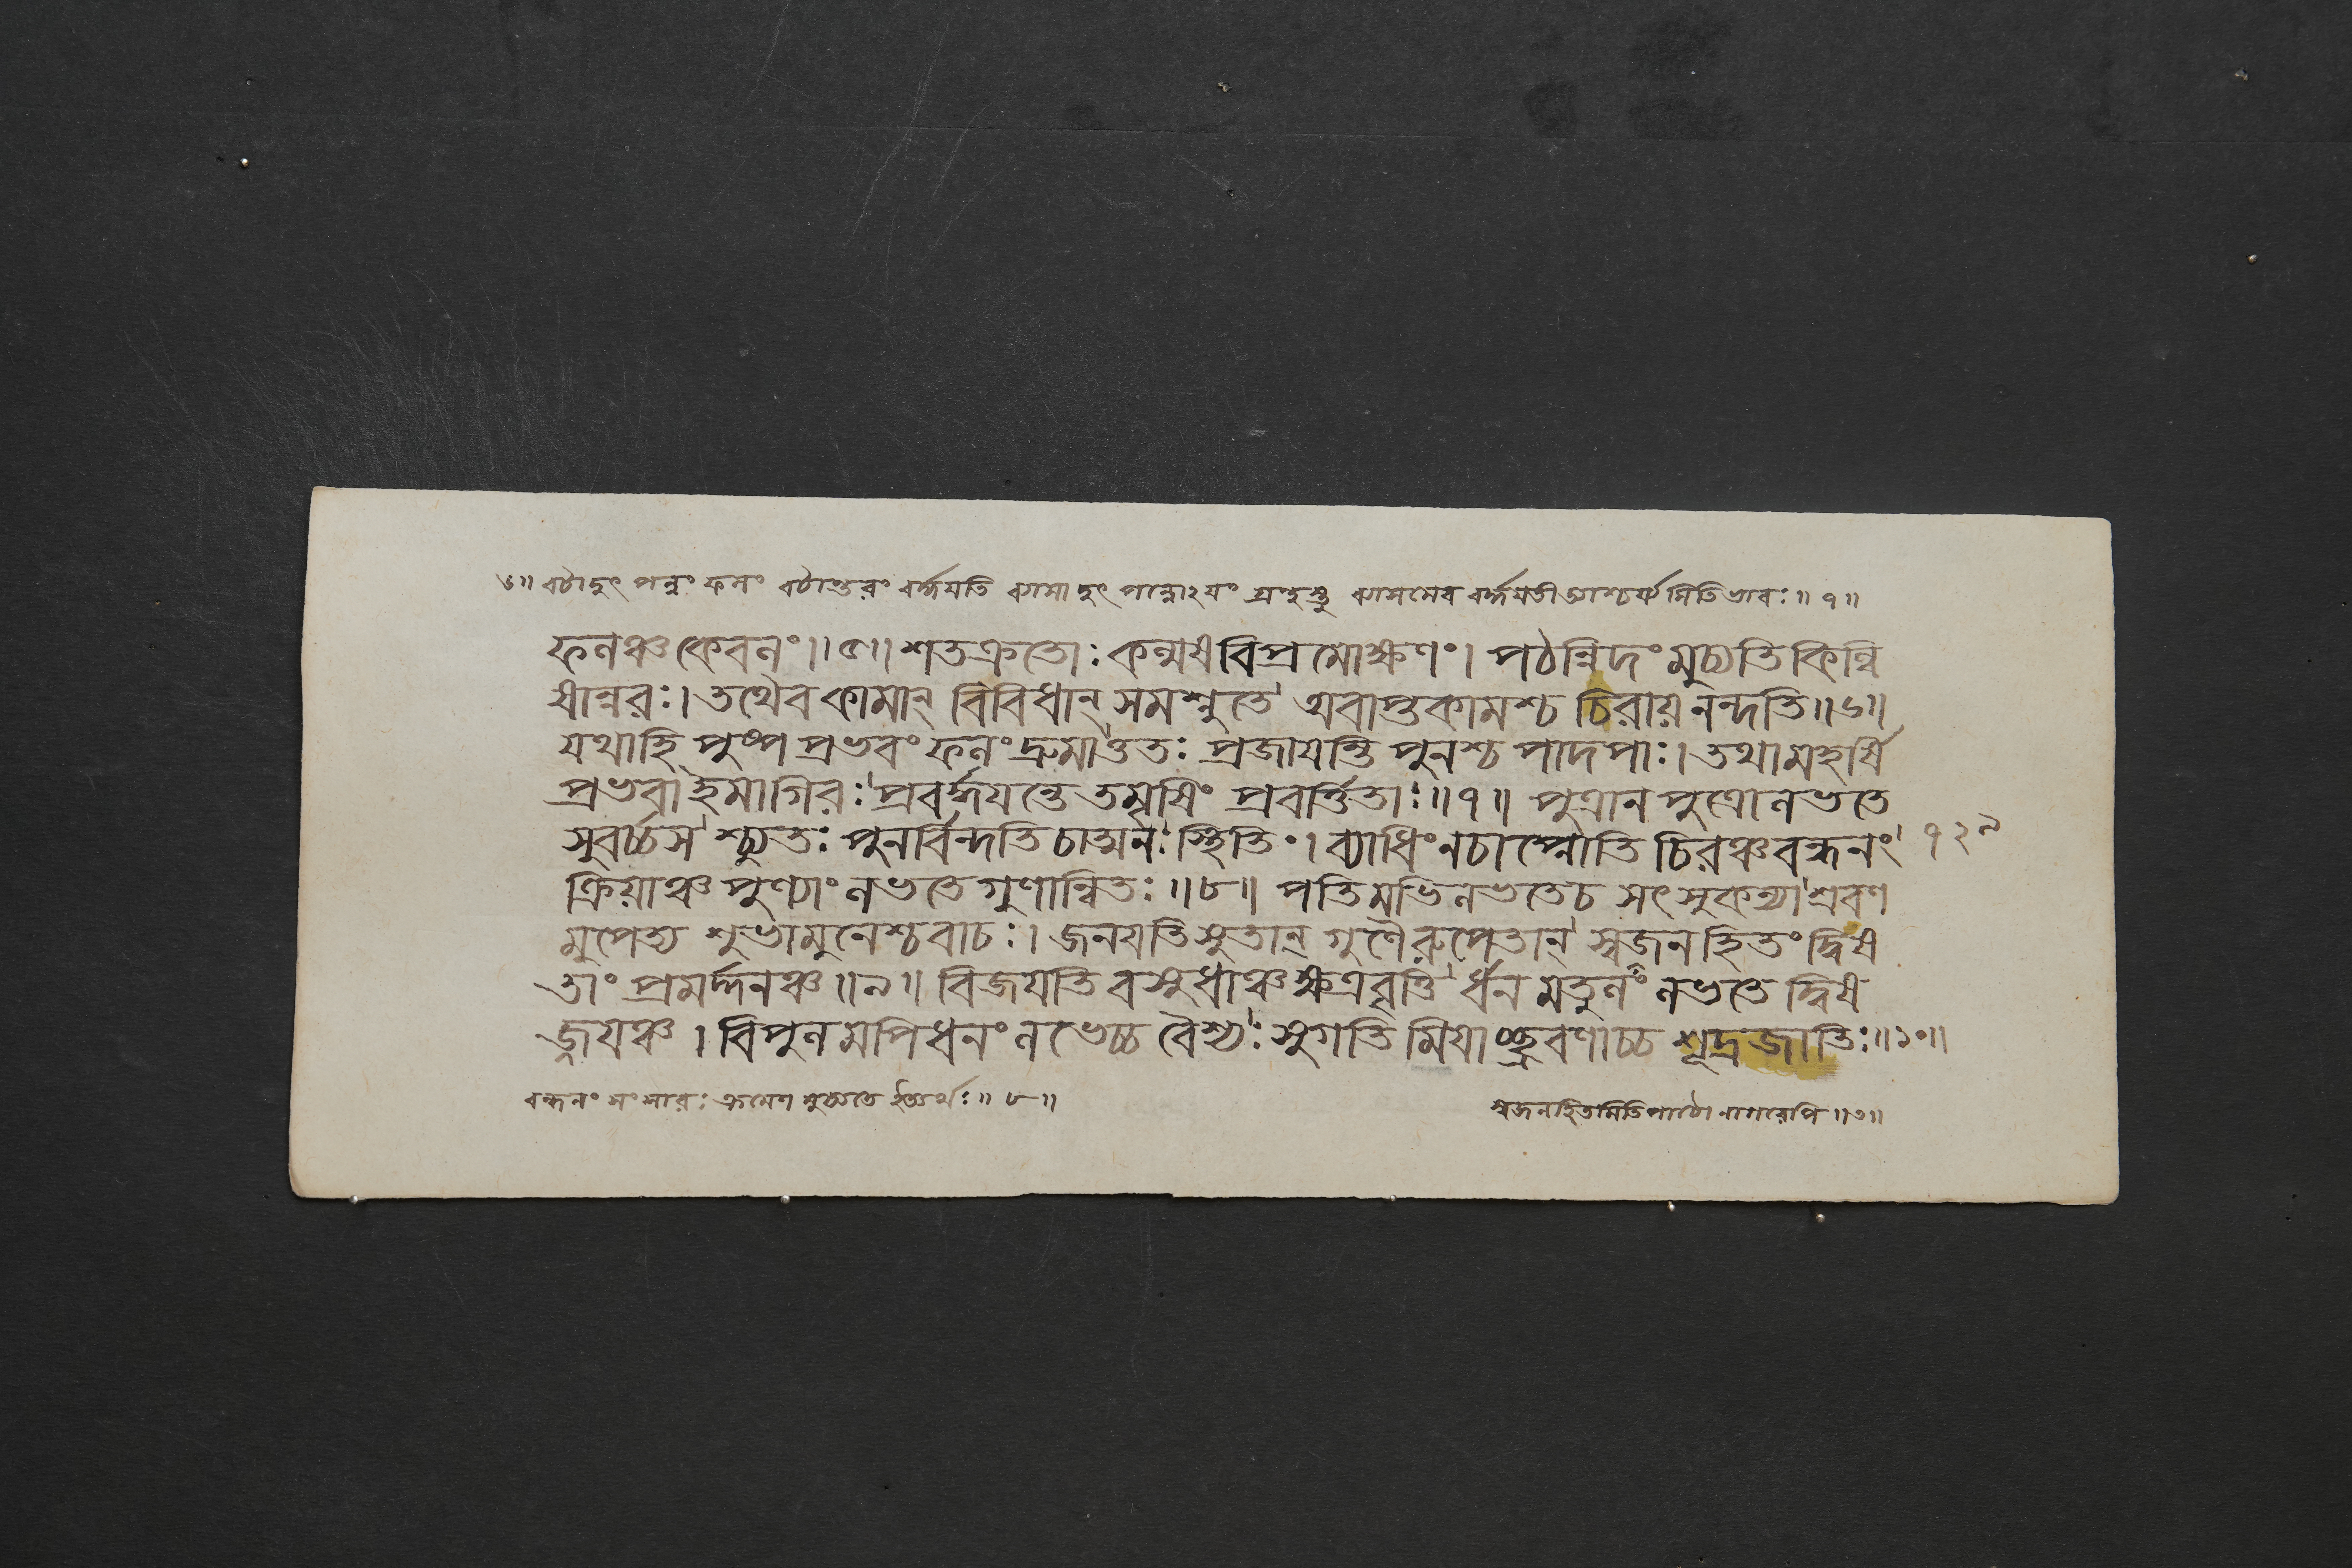 ৬॥ বটাদুৎপন্নং ফলং বটান্তরং বর্দ্ধয়তি ব্যাসাদুৎপন্নোঽয়ং গ্রন্থস্তু ব্যাসমেব বর্দ্ধয়তী আশ্চর্য্যমিতিভাবঃ॥৭॥
ফলঞ্চ কেবলং॥৫॥ শতক্রতোঃ কল্মষবিপ্রমোক্ষণং। পঠন্নিদং মুচ্যতি কিল্বি
ষান্নরঃ। তথৈব কামান্ বিবিধান্ সমশ্নুতে অবাপ্তকামশ্চ চিরায় নন্দতি॥৬॥
যথাহি পুষ্পপ্রভবং ফলং দ্রুমাত্ততঃ প্রজায়ন্তি পুনশ্চ পাদপাঃ। তথা মহর্ষি
প্রভবা ইমাগিরঃ প্রবর্দ্ধয়ন্তে তমৃষিং প্রবর্ত্তিতাঃ॥৭॥ পুত্রানপুত্রো লভতে
সুবর্চ্চসশ্চ্যুতঃ পুনর্বিন্দতি চাত্মনঃ স্থিতিং। ব্যাধিং নচাপ্নোতি চিরঞ্চ বন্ধনং ৭২৯
ক্রিয়াঞ্চ পুণ্যাং লভতে গুণান্বিতঃ॥৮॥ পতিমভিলভতে চ সৎসুকন্যা শ্রবণ
মুপেত্য শুভা মুনেশ্চ বাচঃ। জনয়তি সুতান্ গুণৈরুপেতান্ স্বজনহিতং দ্বিষ
তাং প্রমর্দ্দনঞ্চ॥৯॥ বিজয়তি বসুধাঞ্চ ক্ষত্রবৃত্তি র্ধনমতুলং লভতে দ্বিষ
জ্জয়ঞ্চ। বিপুলমপি ধনং লভেচ্চ বৈশ্যঃ সুগতিমিয়াচ্ছ্রবণাচ্চ শূদ্রজাতিঃ॥১০॥
বন্ধনং সংসারঃ ক্রমেণ মুচ্যতে ইত্যর্থঃ॥৮॥
স্বজনহিতমিতিপাঠো